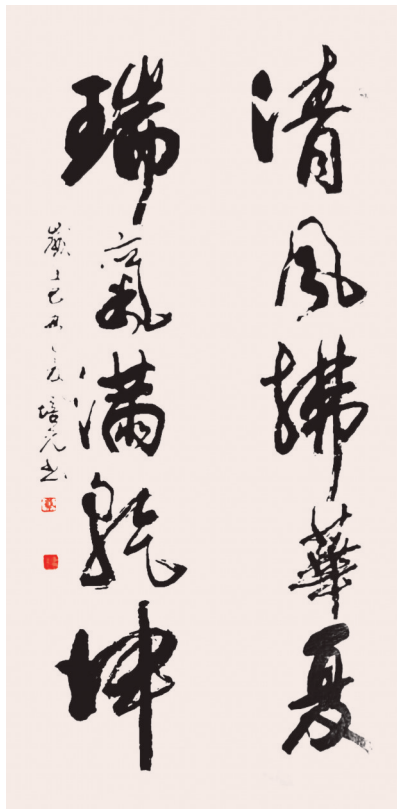 清風拂華夏
瑞氣滿乾坤
歲在己丑之夏培元书